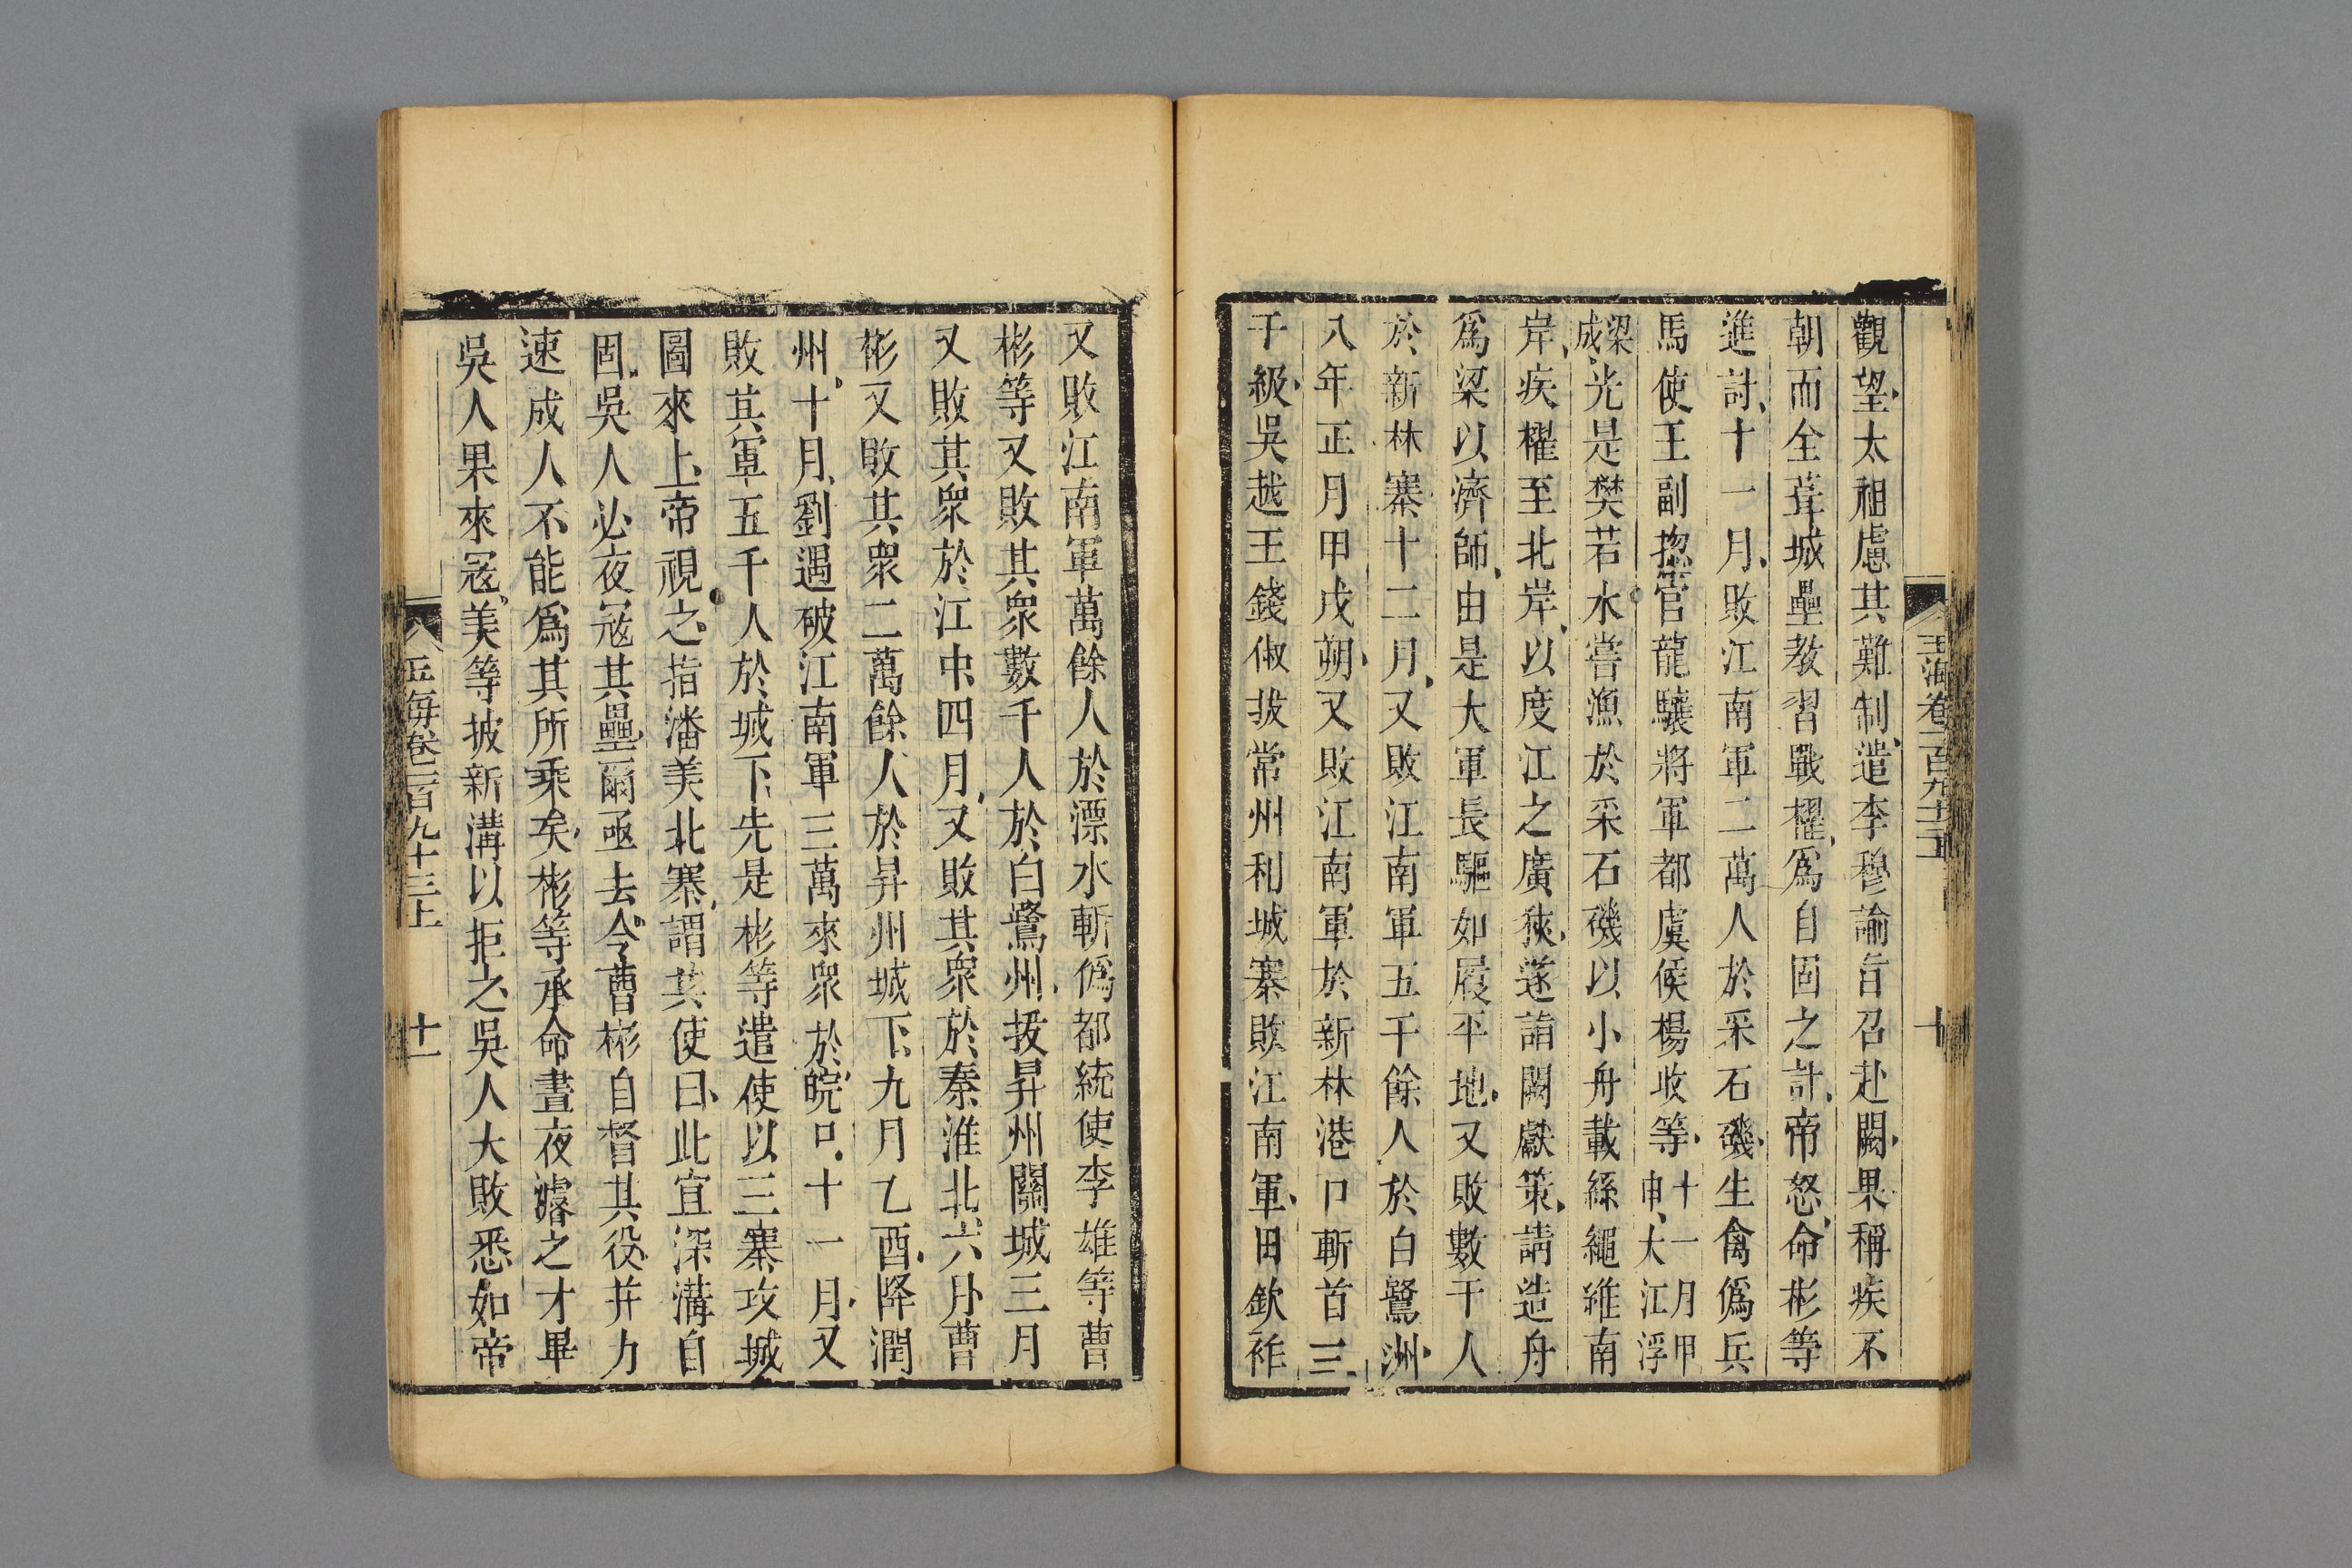 玉海卷一百九十三上
十
觀望太祖慮其難制遣李穆諭旨召赴闕果稱疾不
朝而全葺城壘教習戰櫂爲自固之計帝怒命彬等
進討十一月敗江南軍二萬人於采石磯生禽僞兵
馬使王副揔管龍驤將軍都虞候楊收等十一月甲申大江浮
梁成光是樊若水嘗漁於采石磯以小舟載絲繩維南
岸疾櫂至北岸以度江之廣狹遂詣闕獻策請造舟
爲梁以濟師由是大軍長驅如履平地又敗數千人
於新林寨十二月又敗江南軍五千餘人於白鷺洲
八年正月甲戌朔又敗江南軍於新林港口斬首三
千級吳越王錢俶拔常州利城寨敗江南軍田欽祚
又敗江南軍萬餘人於漂水斬僞都統使李雄等曹
彬等又敗其衆數千人於白鷺州拔昇州關城三月
又敗其衆於江中四月又敗其衆於秦淮北六月曹
彬又敗其衆二萬餘人於昇州城下九月乙酉降潤
州十月劉遇破江南軍三萬來衆於皖口十一月又
敗其軍五千人於城下先是彬等遣使以三寨攻城
圖來上帝視之指潘美北寨謂其使曰此宜深溝自
固吳人必夜冦其壘爾亟去令曹彬自督其役并力
速成人不能爲其所乘矣彬等承命晝夜濬之才畢
吳人果來冦美等披新溝以拒之吳人大敗悉如帝
玉海卷一百九十三上
十一